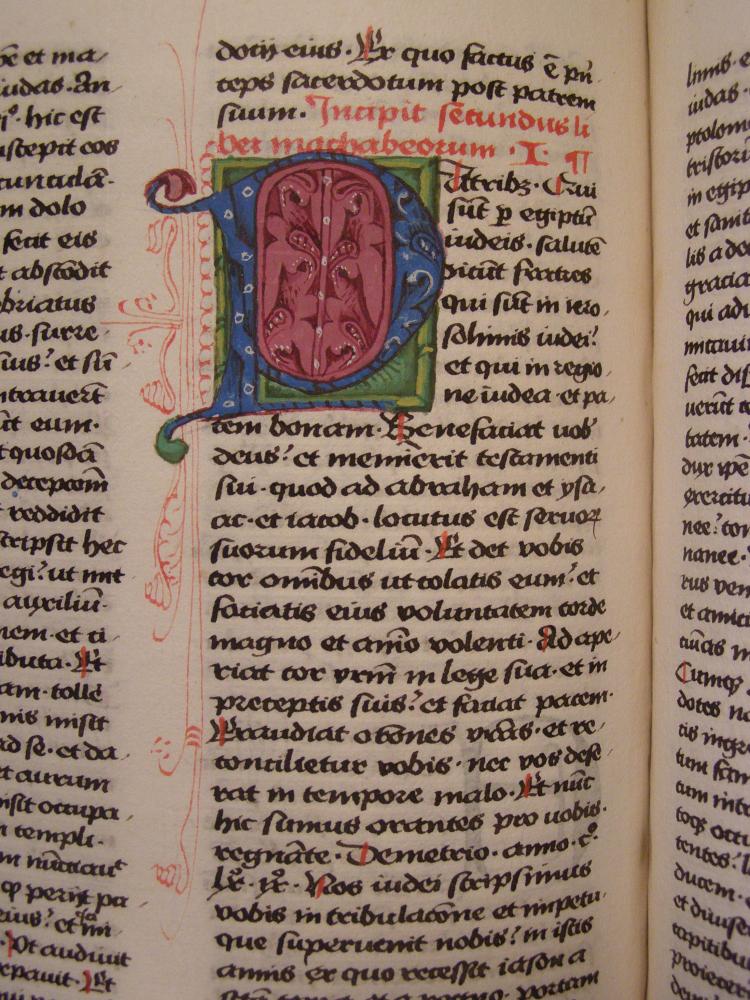 ꝑe et ma
iudas. An
hic est
suscepit eos
m dolo
fecit eis
t abscōdit
ebriatus
us. surre
suis? et sūi
ntrauerūt
ūt eum.
t quosdā
decepcōm
t reddidit
scripsit hec
regi? ut mit
auxiliū.
nem. et ci
ibuta. Et
am. tolle
nis misit
ad se. et da
et aurum
misit occupa
n templi.
m nūciaut
ꝙ perijt pa
eius? et
Vt audiuit
. Et
dotij eius. Ex quo factus ē prī
ceps sacerdotum post patrem
suum. Incipit secundus li
ber machabeorum. I. ¶
Fratribꝫ. Qui
sūt ꝑ egiptū
iudeis. salutē
dicūt fratres
qui sūt in iero
solimis iudei?
et qui in regio
ne iudea et pa
cem bonam. Benefaciat uob
deus? et meminerit testamenti
sui. quod ad abraham et ysa
ac. et iacob. locutus est seruoꝝ
suorum fideliū. Et det vobis
cor omībus ut colatis eum? et
faciatis eius voluntatem corde
magno et aīmo volenti. Adape
riat cor vrm̄ in lege sua. et in
preceptis suis? et faciat pacem.
Exaudiat orōnes vrās. et re
concilietur vobis. nec vos dese
rat in tempore malo. Et nūc
hic sumus orantes pro uobis.
regnāte. Demetrio. anno. c°.
lx. ix. Nos iudei scripsimus
vobis in tribulacōne et impetu
que superuenit nobis? in istis
annis ex quo recessit iason a
sctā terra. et a regno. portam
iudas.
ptolom
tristori
in egip
et sanit
lis a deo
gracia
qui adu
micauit
fecit
uerūt
tatem.
dux
exercitu
nee? con
nanee.
cus ven
et amici
cias
Cumqꝫ
dotes
cis ingre
cum fan
cum intr
toqꝫ occu
ducem.
et diuise
capitibu
proiecer